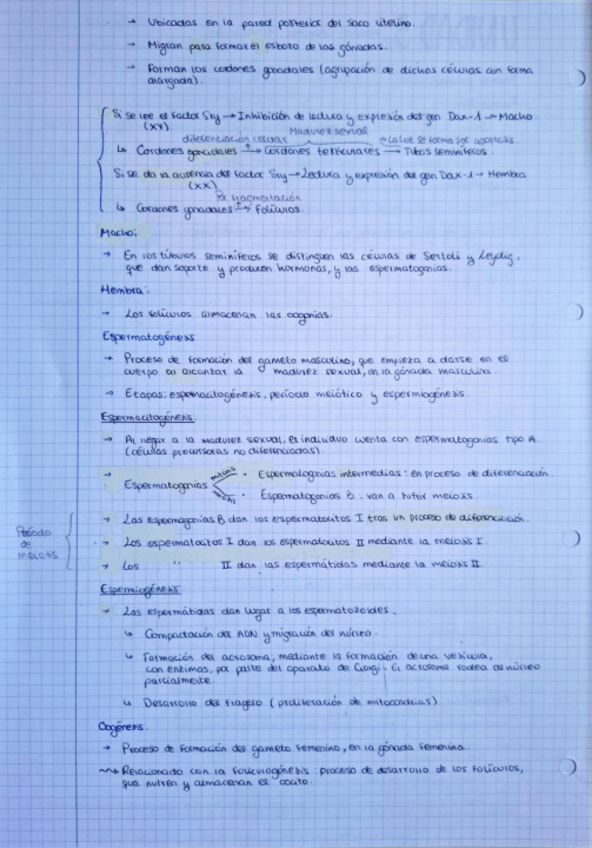 → Ubicadas en la pared posterior del saco vitelino.
→ Migran para formar el esbozo de las gónadas.
→ Forman los cordones gonadales (agrupación de dichas células con forma
alargada).
Si se lee el factor Sry → Inhibición de lectura y expresión del gen Dax-1 → Macho
(XY)
diferenciación células Madurez sexual → La luz se forma por apoptosis
↳ Cordones gonadales → Cordones testiculares → Tubos seminíferos.
Si se da la ausencia del factor Sry → Lectura y expresión del gen Dax-1 → Hembra
(XX)
Por fragmentación
↳ Cordones gonadales → Folículos.
Macho:
→ En los túbulos seminíferos se distinguen las células de Sertoli y Leydig,
que dan soporte y producen hormonas, y las espermatogonias.
Hembra:
→ Los folículos almacenan las oogonias.
Espermatogénesis
→ Proceso de formación del gameto masculino, que empieza a darse en el
cuerpo al alcanzar la madurez sexual, en la gónada masculina.
→ Etapas: espermacitogénesis, período meiótico y espermiogénesis.
Espermacitogénesis.
→ Al llegar a la madurez sexual, el individuo cuenta con espermatogonias tipo A
(células precursoras no diferenciadas).
→ Espermatogonias mitosis • Espermatogonias intermedias: en proceso de diferenciación.
mitosis • Espermatogonias B: van a sufrir meiosis.
→ Las espermagonias B dan los espermatocitos I tras un proceso de diferenciación.
Período
de
meiosis
→ Los espermatocitos I dan los espermatocitos II mediante la meiosis I.
→ Los " II dan las espermátidas mediante la meiosis II.
Espermiogénesis.
→ Las espermátidas dan lugar a los espermatozoides.
↳ Compactación del ADN y migración del núcleo.
↳ Formación del acrosoma, mediante la formación de una vesícula,
con enzimas, por parte del aparato de Golgi. El acrosoma rodea al núcleo
parcialmente.
↳ Desarrollo del flagelo (proliferación de mitocondrias)
Oogénesis.
→ Proceso de formación del gameto femenino, en la gónada femenina.
→ Relacionado con la foliculogénesis: proceso de desarrollo de los folículos,
que nutren y almacenan el oocito.